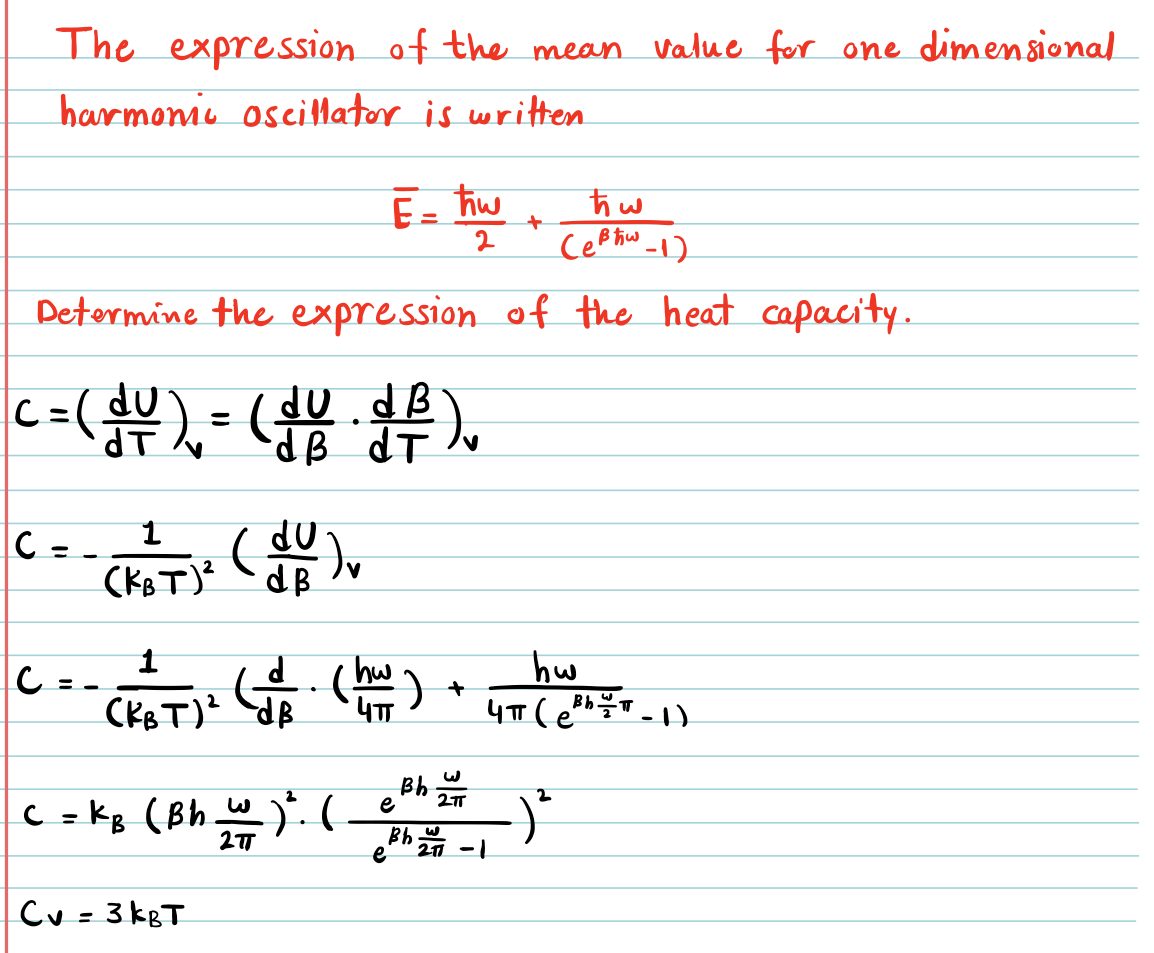 The expression of the mean value for one dimensional
harmonic oscillator is written
Ē = ħω/2 + ħω/(e^{βħω} - 1)
Determine the expression of the heat capacity.
C = (dU/dT)_v = (dU/dβ · dβ/dT)_v
C = - 1/(k_B T)² (dU/dβ)_v
C = - 1/(k_B T)² (d/dβ · (hω/4π) + hω/4π(e^{βh ω/2 π} - 1)
C = k_B (βh ω/2π)² · (e^{βh ω/2π}/e^{βh ω/2π} - 1)²
Cv = 3k_BT